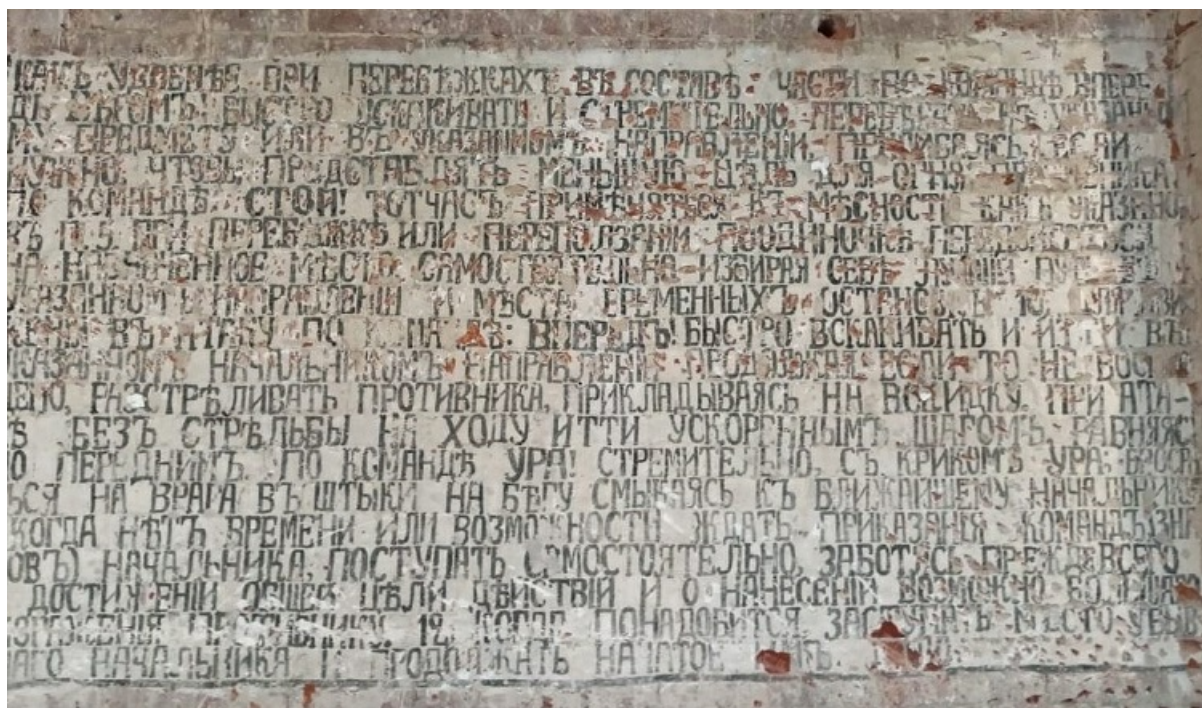 УДВЕНѢЕ. ПРИ ПЕРЕБѢЖКАХЪ ВЪ СОСТАВѢ ЧАСТИ ПО КОМАНДѢ ВПЕРЕ
ДЪ БѢГОМЪ! БЫСТРО УСКАКИВАТЬ И СТРЕМИТЕЛЬНО ПЕРЕБѢГАТЬ
МУ ПРЕДМЕТУ ИЛИ ВЪ УКАЗАННОМЪ НАПРАВЛЕНІИ, ПРИГИБАЯСЬ, ЕСЛИ
НУЖНО, ЧТОБЫ ПРЕДСТАВЛЯТЬ МЕНЬШУЮ ЦѢЛЬ ДЛЯ ОГНЯ
ПО КОМАНДѢ СТОЙ! ТОТЧАСЪ ПРИМѢНЯТЬСЯ КЪ МѢСНОСТИ КАКЪ УКАЗАНО
ВЪ П. 5. ПРИ ПЕРЕБѢЖКѢ ИЛИ ПЕРЕПОЛЗАНІИ ПООДИНОЧКѢ
НА НАЗНАЧЕННОЕ МѢСТО САМОСТОЯТЕЛЬНО ИЗБИРАЯ СЕБѢ ЛУЧШІЙ ПУТЬ
УКАЗАННОМЪ НАПРАВЛЕНІИ И МѢСТА ВРЕМЕННЫХЪ ОСТАНОВОКЪ 10.
ЖЕНІИ ВЪ АТАКУ ПО КОМАНДѢ: ВПЕРЕДЪ! БЫСТРО ВСКАКИВАТЬ И ИТТИ ВЪ
УКАЗАННОМЪ НАЧАЛЬНИКОМЪ НАПРАВЛЕНІИ ПРОДОЛЖАЯ, ЕСЛИ ТО НЕ ВОСП
ЩЕНО, РАЗСТРѢЛИВАТЬ ПРОТИВНИКА, ПРИКЛАДЫВАЯСЬ НА ВСКИДКУ. ПРИ АТА-
КѢ БЕЗЪ СТРѢЛЬБЫ НА ХОДУ ИТТИ УСКОРЕННЫМЪ ШАГОМЪ, РАВНЯЯСЬ
ПО ПЕРЕДНИМЪ. ПО КОМАНДѢ УРА! СТРЕМИТЕЛЬНО, СЪ КРИКОМЪ УРА: БРОСА
ТЬСЯ НА ВРАГА ВЪ ШТЫКИ НА БѢГУ СМЫКАЯСЬ КЪ БЛИЖАЙШЕМУ НАЧАЛЬНИКУ
КОГДА НѢТЪ ВРЕМЕНИ ИЛИ ВОЗМОЖНОСТИ ЖДАТЬ ПРИКАЗАНІЯ (КОМАНДЪ, ЗНА
КОВЪ) НАЧАЛЬНИКА, ПОСТУПАТЬ САМОСТОЯТЕЛЬНО, ЗАБОТЯСЬ ПРЕЖДЕ ВСЕГО
О ДОСТИЖЕНІИ ОБЩЕЙ ЦѢЛИ ДѢЙСТВІЙ И О НАНЕСЕНІИ ВОЗМОЖНО БОЛЬШАГО
ПОРАЖЕНІЯ ПРОТИВНИКУ. 12. КОГДА ПОНАДОБИТСЯ, ЗАСТУПАТЬ МѢСТО УБЫВ
ШАГО НАЧАЛЬНИКА И ПРОДОЛЖАТЬ НАЧАТОЕ ИМЪ